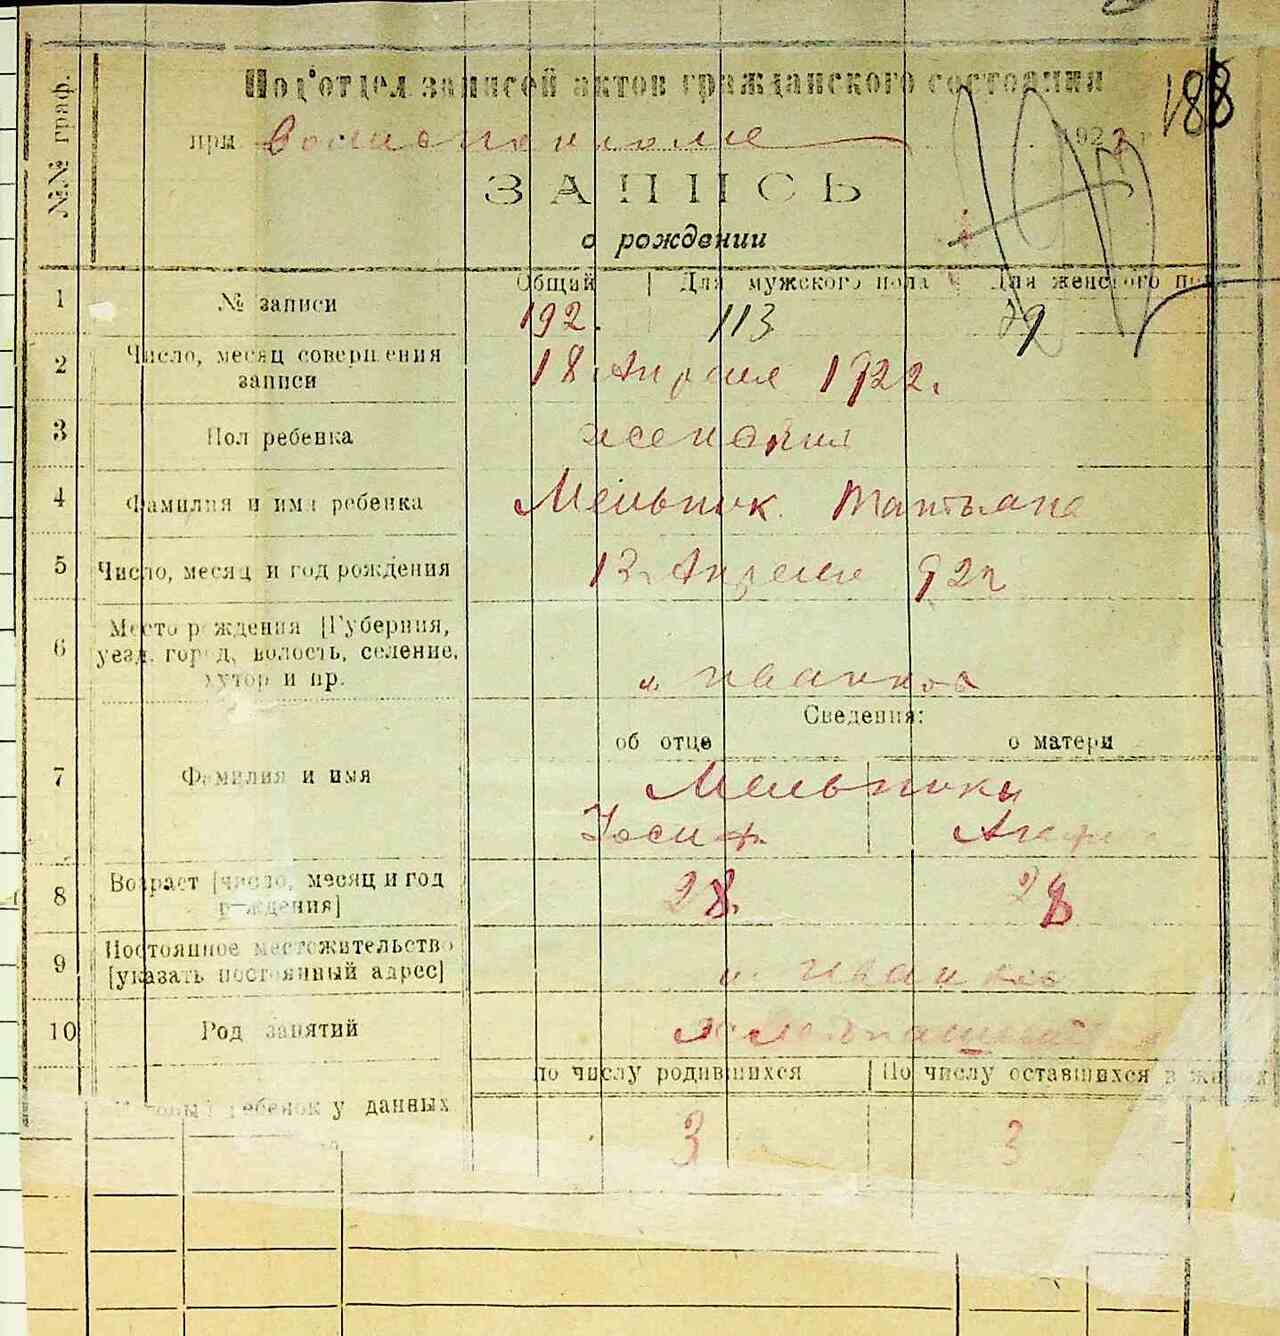 188
Под'отдел записей актов гражданского состояния
№№ граф.
при Волисполкоме 1922 г.
ЗАПИСЬ
о рождении
1 № записи Общий Для мужского пола Для женского пола
192. 113 79
2 Число, месяц совершения записи 18 Апреля 1922.
3 Пол ребенка женский
4 Фамилия и имя ребенка Мельник Татьяна
5 Число, месяц и год рождения 13 Апреля 922
6 Место рождения [Губерния,
уезд, город, волость, селение,
хутор и пр. м. Иванков
Сведения:
об отце о матери
7 Фамилия и имя Мельники
Иосиф Агафия
8 Возраст [число, месяц и год
рождения] 28. 28
9 Постоянное местожительство
[указать постоянный адрес] м. Иванков
10 Род занятий хлебопашество
по числу родившихся По числу оставшихся в живых
Который ребенок у данных
3 3